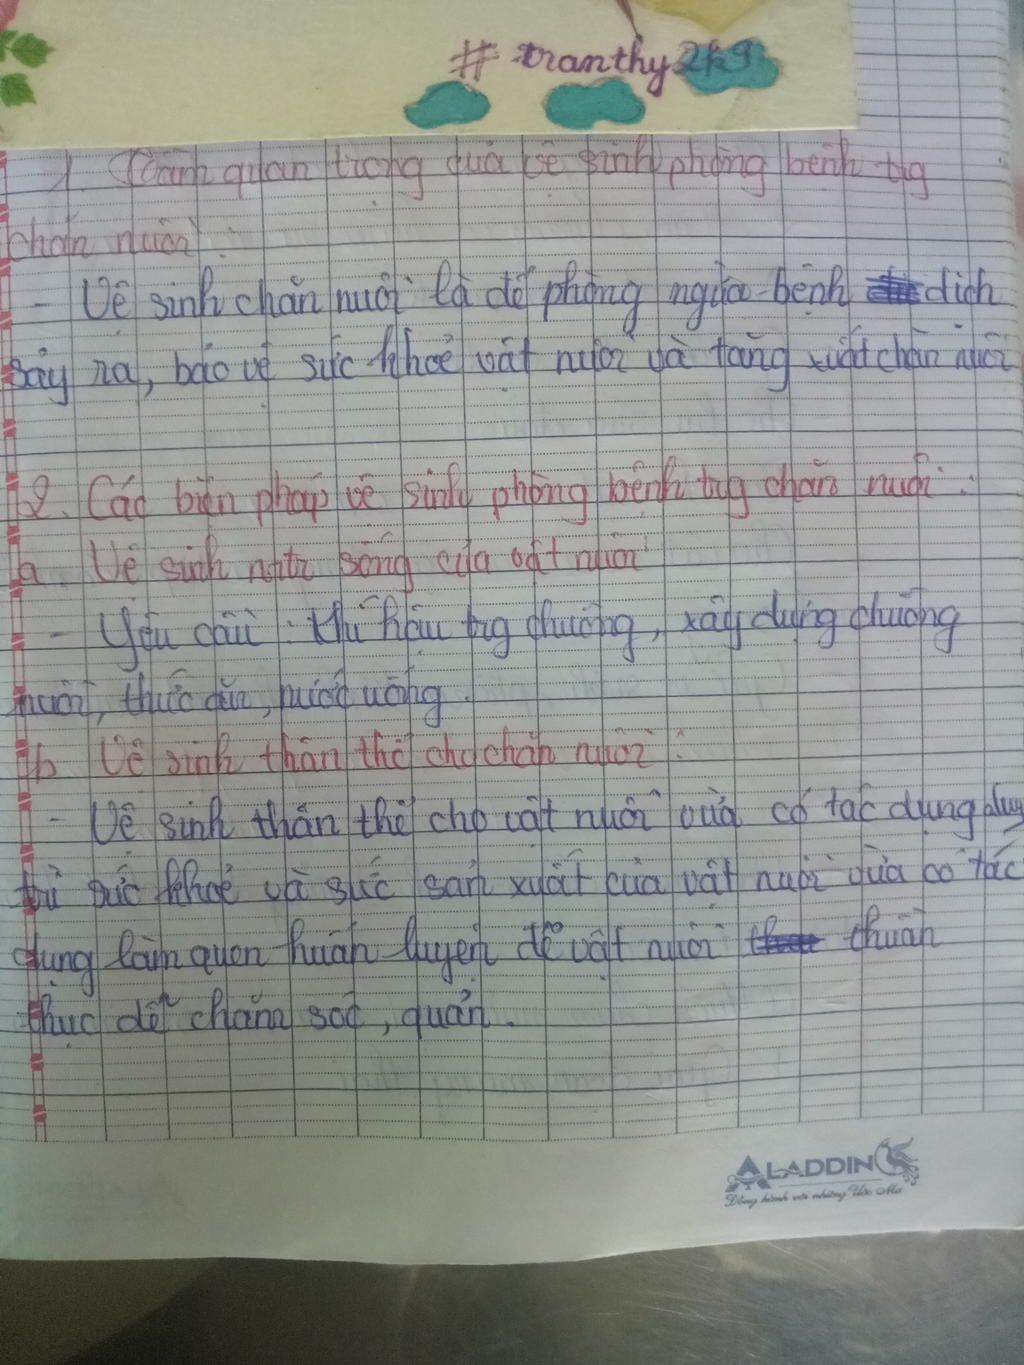 # tranthy2k9
1. Tầm quan trọng của vệ sinh phòng bệnh trg
chăn nuôi:
- Vệ sinh chăn nuôi là để phòng ngừa bệnh dịch
sảy ra, bảo vệ sức khoẻ vật nuôi và tăng xuất chăn nuôi
2. Các biện pháp vệ sinh phòng bệnh trg chăn nuôi:
a. Vệ sinh sống của vật nuôi
- Yêu cầu: khí hậu trg chuồng, xây dựng chuồng
nuôi, thức ăn, nước uống.
b Vệ sinh thân thể cho chăn nuôi:
- Vệ sinh thân thể cho vật nuôi vừa có tác dụng duy
trì sức khoẻ và sức sản xuất của vật nuôi vừa có tác
dụng làm quen huấn luyện để vật nuôi thuần
thục dễ chăm sóc, quản.
ALADDIN
Đồng hành với những Ước Mơ